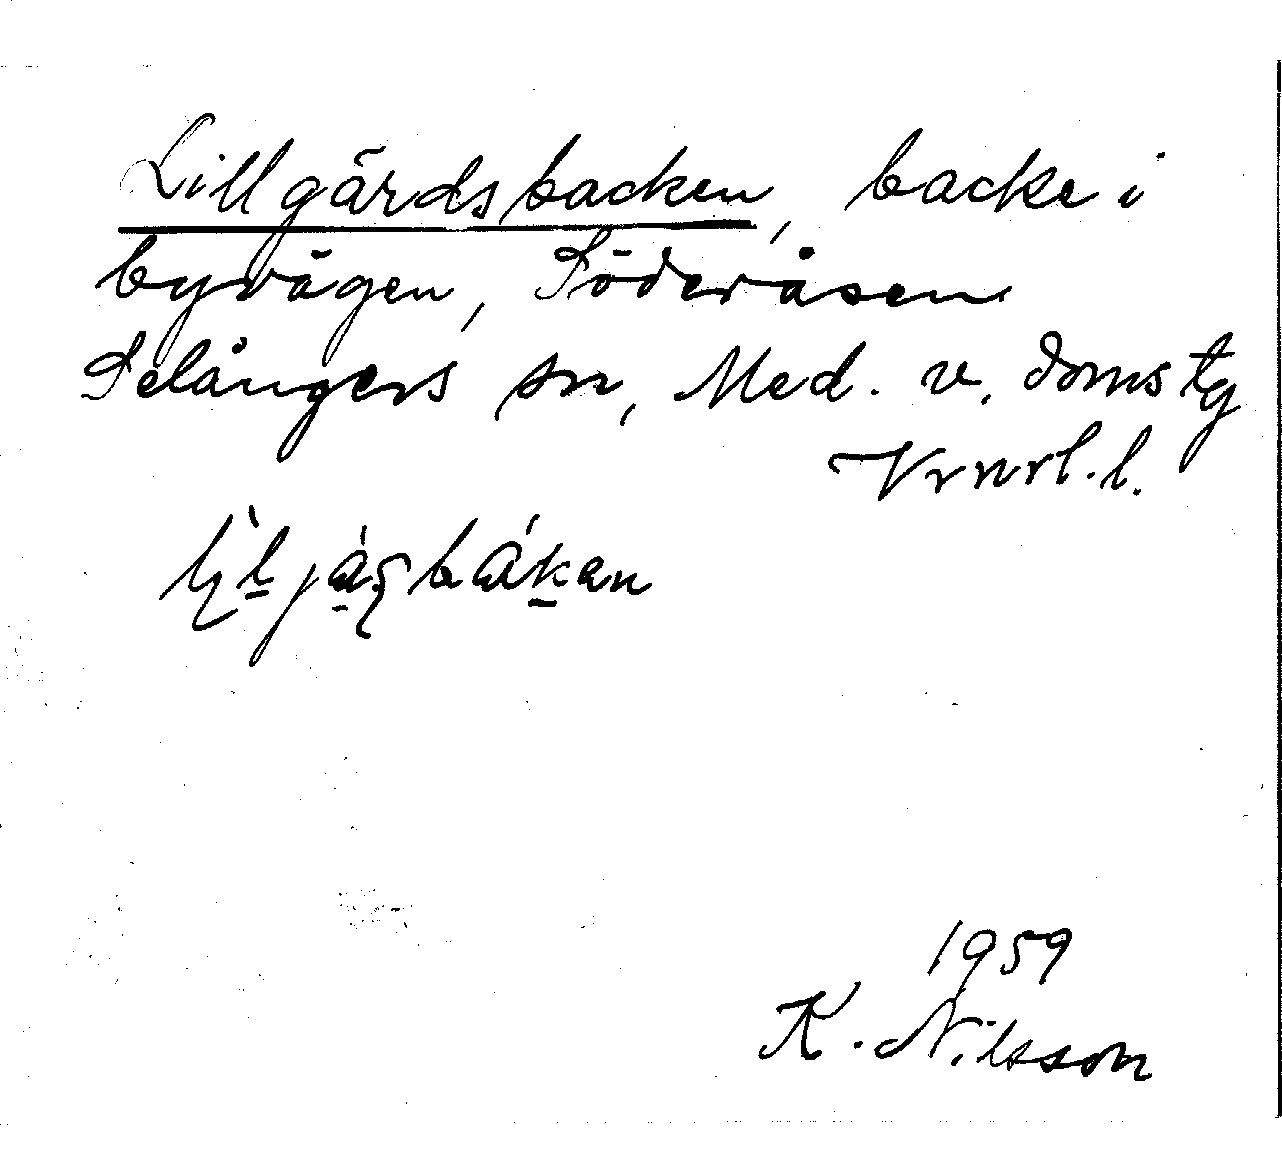 Lillgärdsbacken, backe i
byvägen, Söderåsen
Selångers sn, Med. v. doms tg
Vrnrl. l.
1959
K. Nilsson